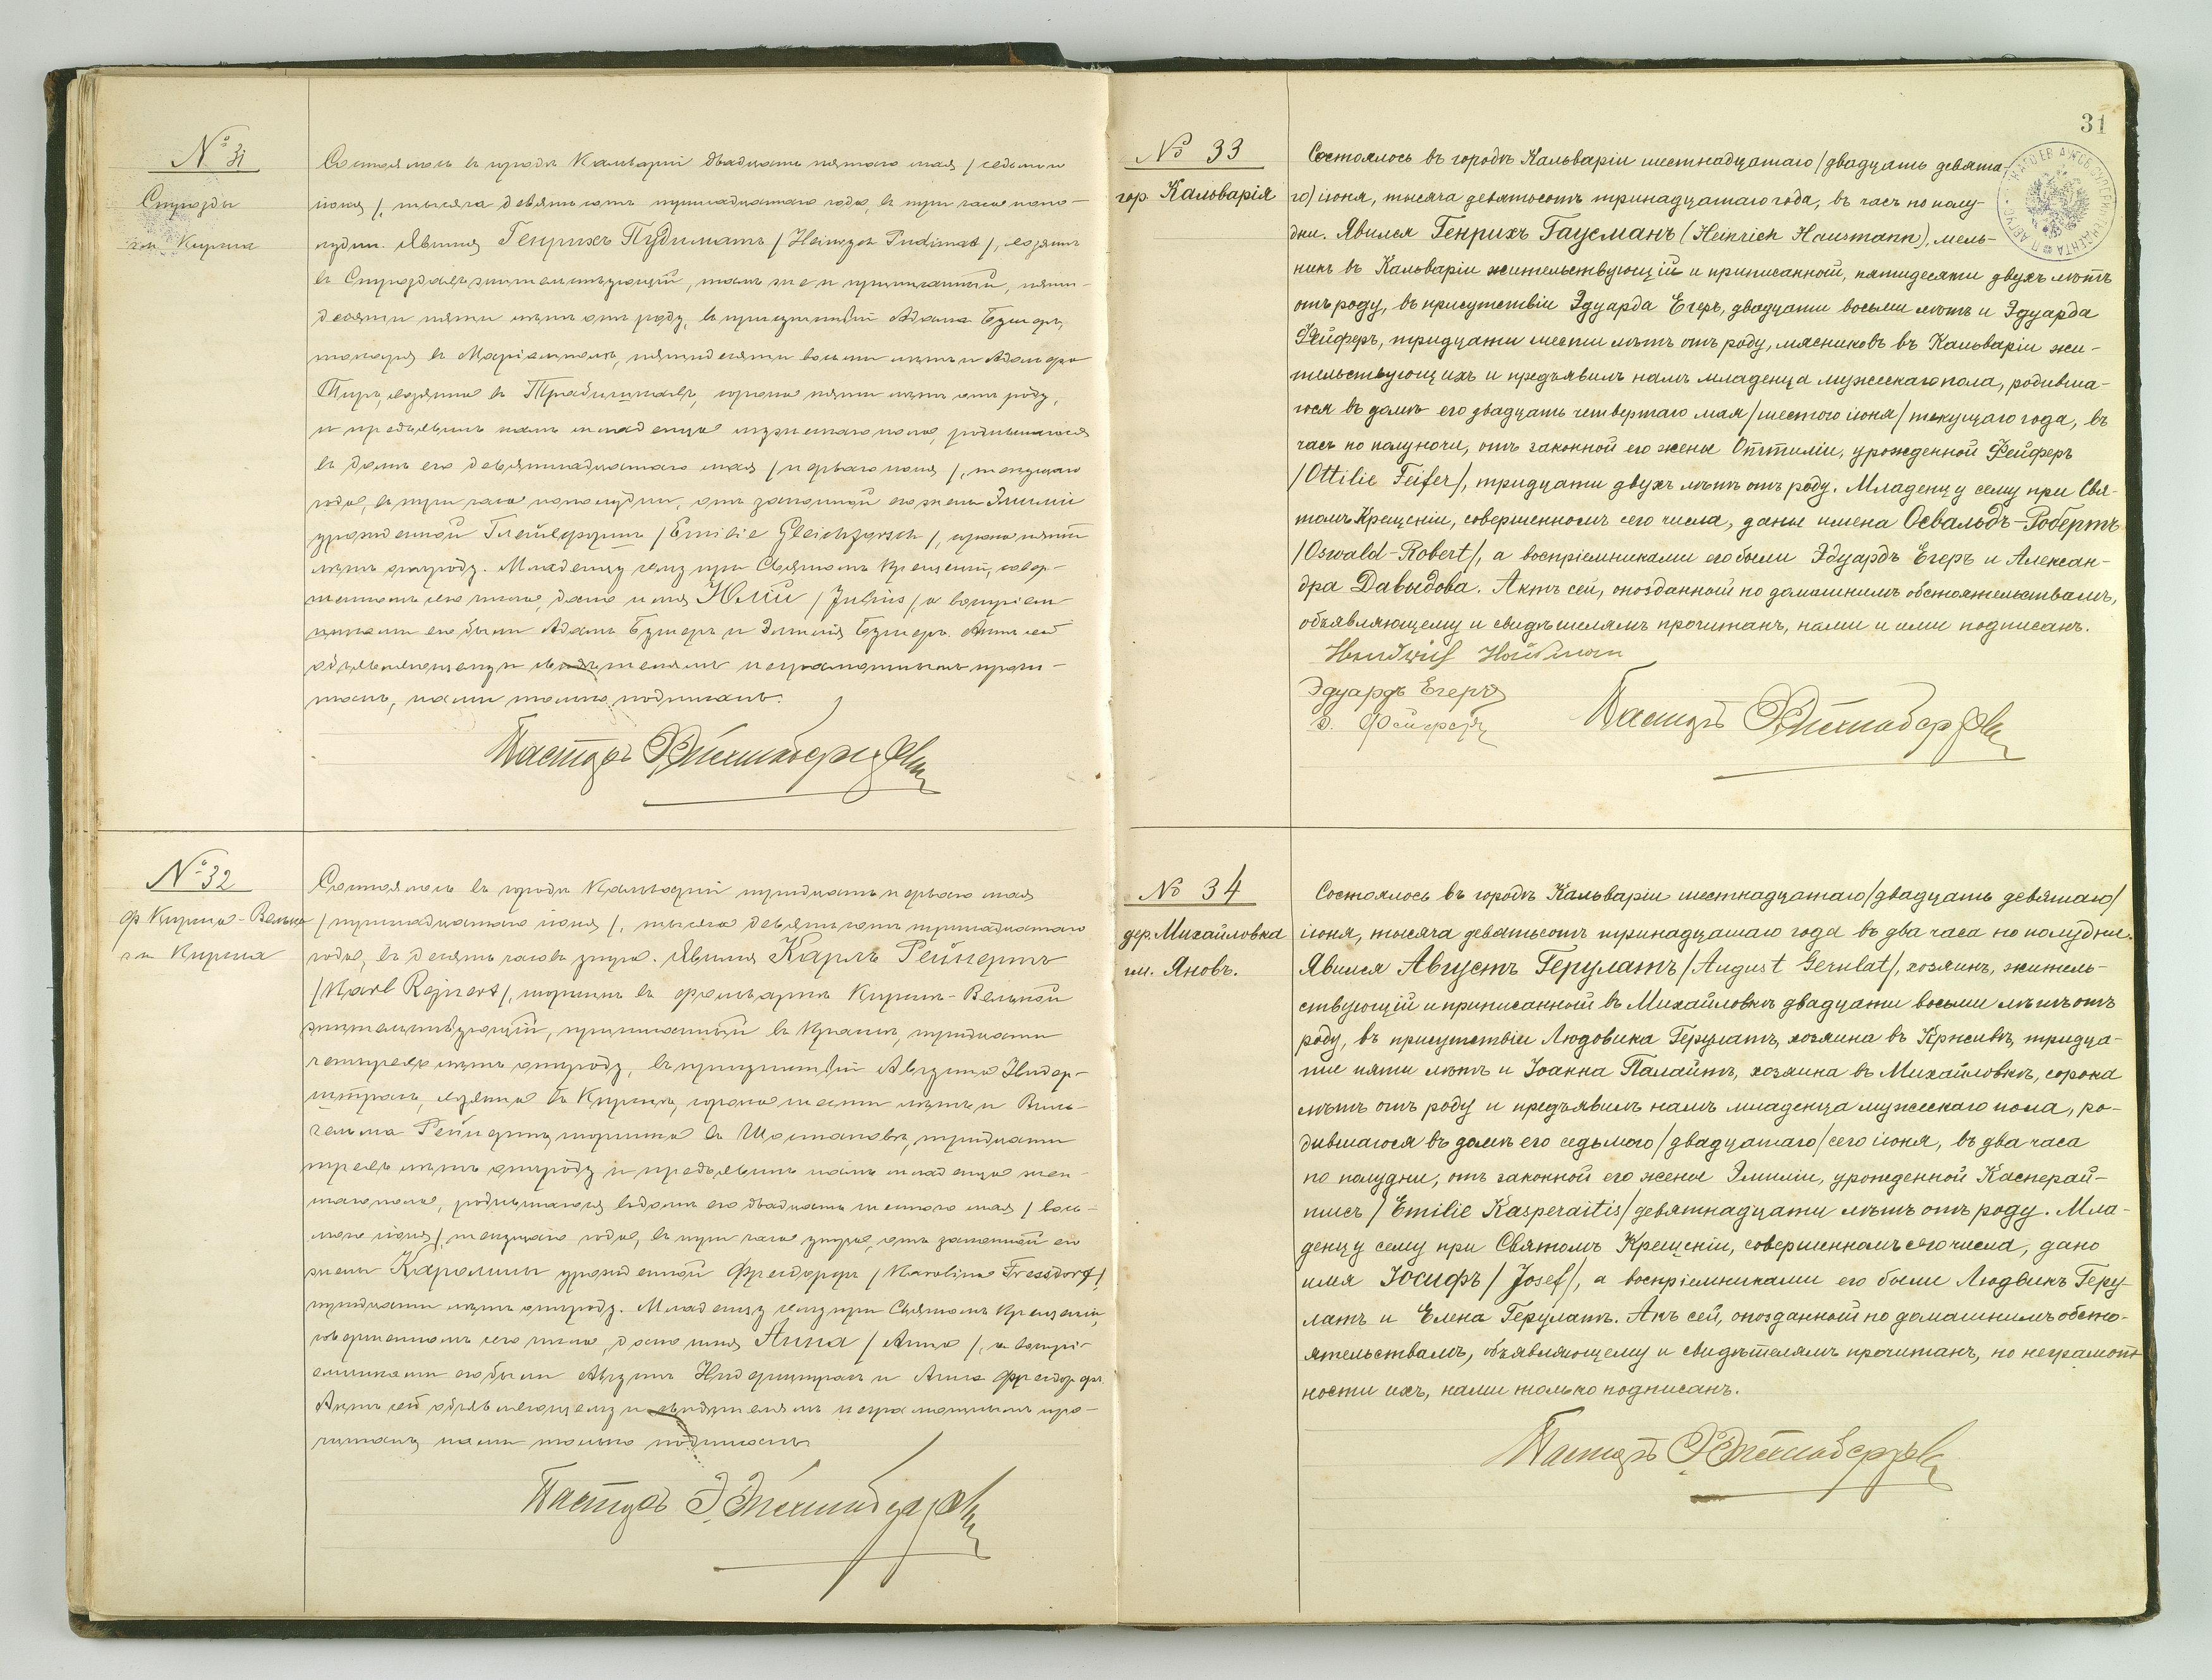 № 31
Спуозды
гм. Кирша
Состоялось въ городѣ Кальваріи двадцать пятаго мая / седьмого
іюня /, тысяча девятьсотъ тринадцатаго года, въ три часа попо-
лудни. Явился Генрихъ Пудиматъ / Heinrych Pudimat /, хозяинъ
въ жительствующій, тамъ же и приписанный, пяти-
десяти пяти лѣтъ отъ роду, въ присутствіи Адама Бушеръ,
токаря въ Маріамполѣ, пятидесяти восьми лѣтъ и Адольфа
хозяина въ сорока пяти лѣтъ отъ роду,
и предъявилъ намъ младенца мужескаго пола, родившагося
въ домѣ его девятнадцатаго мая / перваго іюня /, текущаго
года, въ три часа пополудни, отъ законной его жены Эмиліи
урожденной Глейхфоршъ / Emilie Gleichforsch /, сорока пяти
лѣтъ отъ роду. Младенцу сему при Святомъ Крещеніи, совер-
шенномъ сего числа, дано имя Юлій / Julius /, а воспріем
никами его были Адамъ Бушеръ и Эмилія Бушеръ. Актъ сей
объявляющему и свидѣтелямъ неграмотнымъ прочи-
танъ, нами только подписанъ.
Пасторъ
№ 32
ф Кирша-Велька
гм Кирша
Состоялось въ городѣ Кальваріи тридцать перваго мая
/ тринадцатаго іюня /, тысяча девятьсотъ тринадцатаго
года, въ девять часовъ утра. Явился Карлъ Рейнертъ
/ Karl Rejnert /, въ фольваркѣ Кирша-Велькой
жительствующій, приписанный въ тридцати
четырехъ лѣтъ отъ роду, въ присутствіи Августа Нидер-
штрасъ, хозяина въ Киршѣ, сорока шести лѣтъ и Виль-
гельма Рейнертъ, въ тридцати
трехъ лѣтъ отъ роду и предъявилъ намъ младенца жен-
скаго пола, родившагося въ домѣ его двадцать шестого мая / вось-
мого іюня /, текущаго года, въ три часа утра, отъ законной его
жены Каролины урожденной Фресдорфъ / Karolina Fressdorf /
тридцати лѣтъ отъ роду. Младенцу сему при Святомъ Крещеніи,
совершенномъ сего числа, дано имя Анна / Anna /, а воспрі-
емниками его были Августъ Нидерштрасъ и Анна Фресдорфъ.
Актъ сей объявляющему и свидѣтелямъ неграмотнымъ про-
читанъ, нами только подписанъ
Пасторъ
31
№ 33
гор. Кальварія
Состоялось въ городѣ Кальваріи шестнадцатаго / двадцать девята-
го) іюня, тысяча девятьсотъ тринадцатаго года, въ часъ по полу-
дни. Явился Генрихъ Гаусманъ (Heinrich Hausmann), мель-
никъ въ Кальваріи жительствующій и приписанной, пятидесяти двухъ лѣтъ
отъ роду, въ присутствіи Эдуарда Егеръ, двадцати восьми лѣтъ и Эдуарда
Фейферъ, тридцати шести лѣтъ отъ роду, мясниковъ въ Кальваріи жи-
тельствующихъ и предъявилъ намъ младенца мужескаго пола, родивша-
гося въ домѣ его двадцать четвертаго мая / шестого іюня / текущаго года, въ
часъ по полуночи, отъ законной его жены Оттиліи, урожденной Фейферъ
/ Ottilie Feifer /, тридцати двухъ лѣтъ отъ роду. Младенцу сему при Свя-
томъ Крещеніи, совершенномъ сего числа, даны имена Освальдъ-Робертъ
/ Oswald-Robert /, а воспріемниками его были Эдуардъ Егеръ и Алексан-
дра Давыдова. Актъ сей, опозданной по домашнимъ обстоятельствамъ,
объявляющему и свидѣтелямъ прочитанъ, нами и ими подписанъ.
Эдуардъ Егеръ
Э. Фейферъ
Пасторъ
№ 34
дер. Михайловка
гм. Яновъ.
Состоялось въ городѣ Кальваріи шестнадцатаго / двадцать девятаго /
іюня, тысяча девятьсотъ тринадцатаго года въ два часа по полудни.
Явился Августъ Герулатъ / August Gerulat /, хозяинъ, житель-
ствующій и приписанной въ Михайловкѣ двадцати восьми лѣтъ отъ
роду, въ присутствіи Людовика Герулатъ, хозяина въ тридца-
ти пяти лѣтъ и Іоанна Палайтъ, хозяина въ Михайловкѣ, сорока
лѣтъ отъ роду и предъявилъ намъ младенца мужескаго пола, ро-
дившагося въ домѣ его седьмого / двадцатаго / сего іюня, въ два часа
по полудни, отъ законной его жены Эмиліи, урожденной Касперай-
тисъ / Emilie Kasperaitis / девятнадцати лѣтъ отъ роду. Мла-
денцу сему при Святомъ Крещеніи, совершенномъ сего числа, дано
имя Іосифъ / Josef /, а воспріемниками его были Людвикъ Геру-
латъ и Елена Герулатъ. Акъ сей, опозданной по домашнимъ обсто-
ятельствамъ, объявляющему и свидѣтелямъ прочитанъ, по неграмот
ности ихъ, нами только подписанъ.
Пасторъ